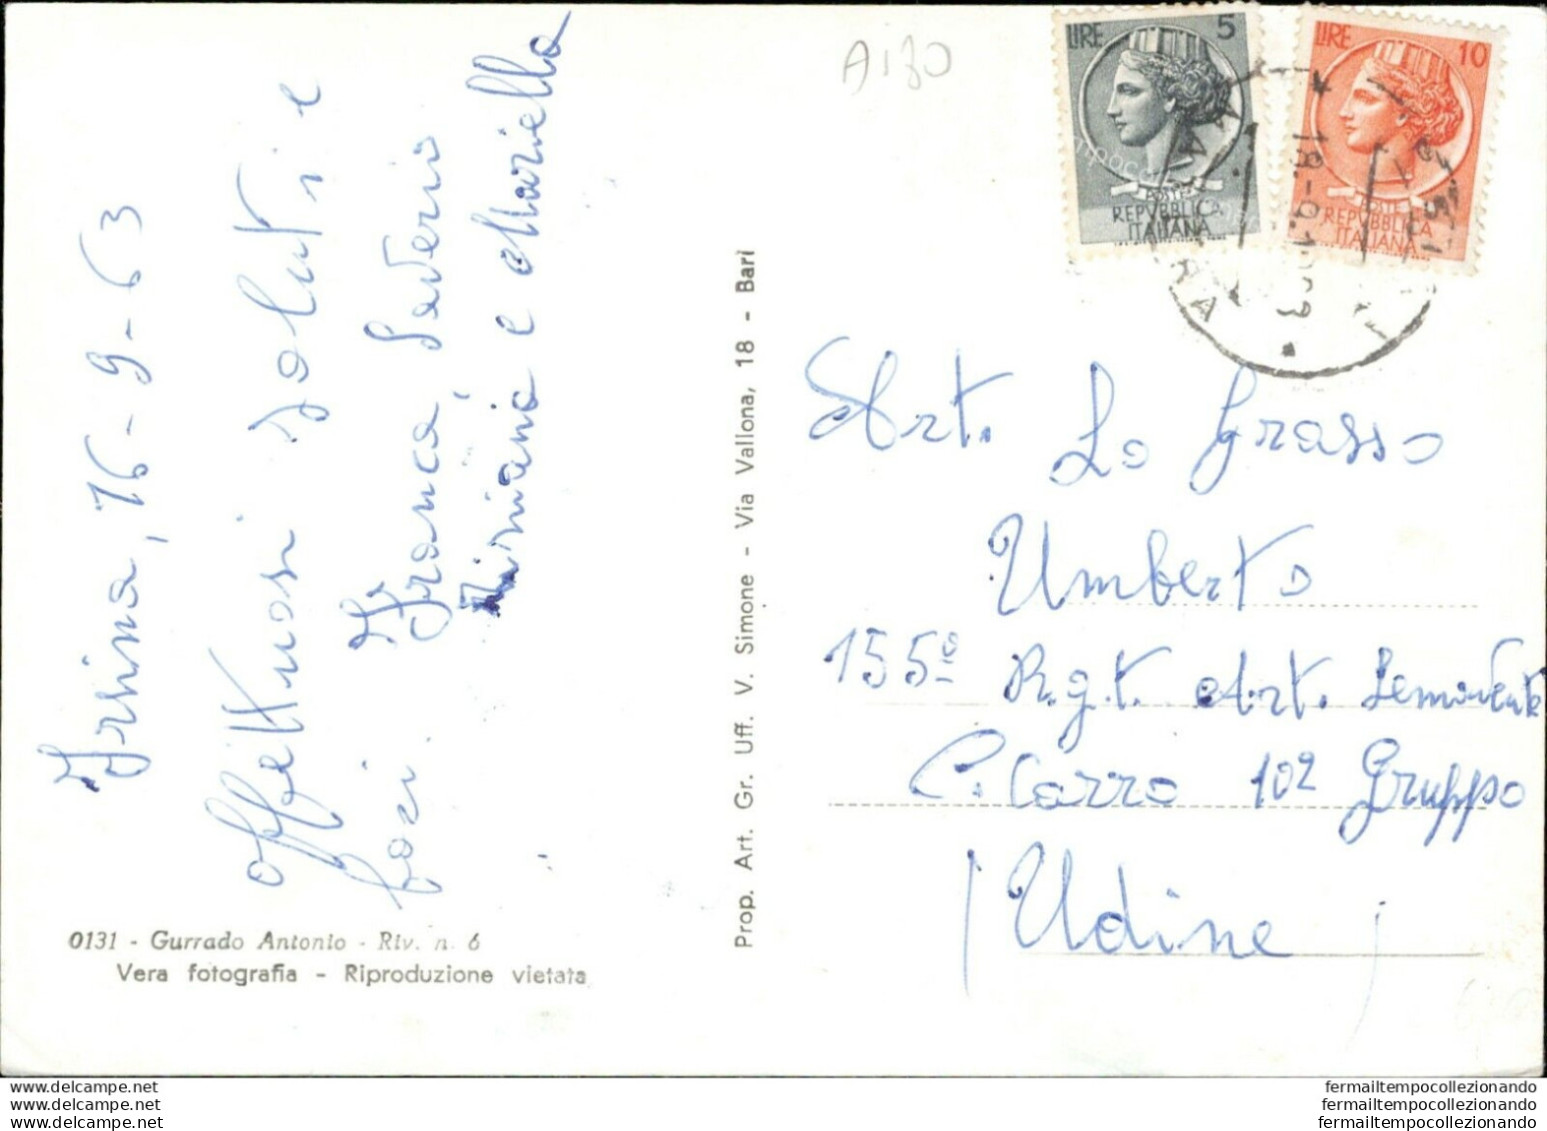 Irsina, 16-9-63
affettuosi saluti e
baci Franca, Saverio
Tiziana e Mariella
0131 - Gurrado Antonio - Riv. n. 6
Vera fotografia - Riproduzione vietata
Prop. Art. Gr. Uff. V. Simone - Via Vallona, 18 - Bari
A180
LIRE 5
POSTE
REPVBBLICA
ITALIANA
LIRE 10
POSTE
REPVBBLICA
ITALIANA
18.-9.1963
Art. Lo Grasso
Umberto
155º Rgt. Art. Semovente
C. Carro 10º Gruppo
(Udine)
www.delcampe.net
www.delcampe.net
www.delcampe.net
fermailtempocollezionando
fermailtempocollezionando
fermailtempocollezionando